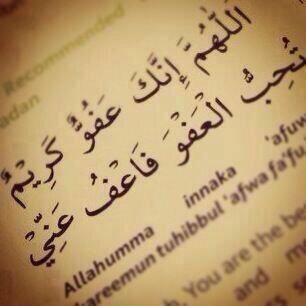 Recommended
adan
اَللّٰهُمَّ إِنَّكَ عَفُوٌّ كَرِيْمٌ
تُحِبُّ الْعَفْوَ فَاعْفُ عَنِّيْ
Allahumma innaka 'afuw
kareemun tuhibbul 'afwa fa'fu
You are the be
and m